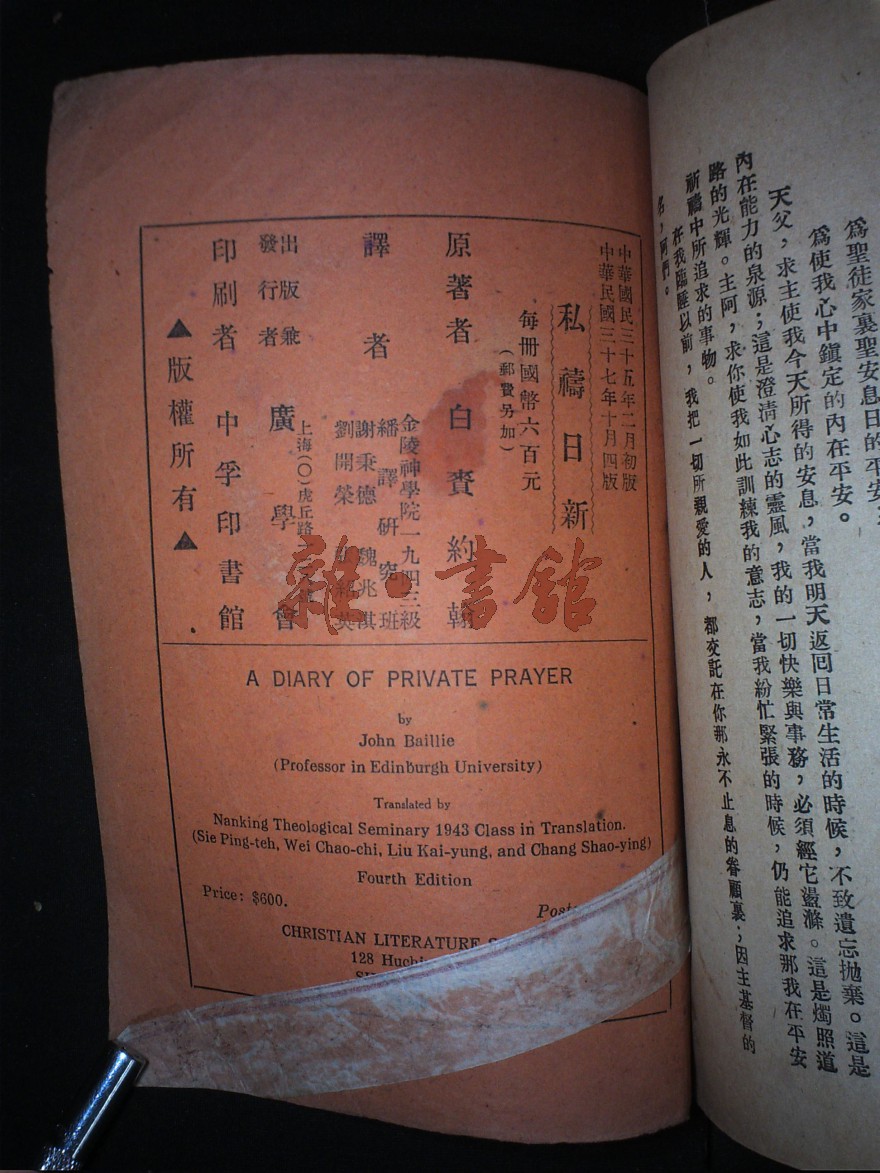 為聖徒家裏聖安息日的平安
為使我心中鎮定的內在平安。
天父，求主使我今天所得的安息，當我明天返囘日常生活的時候，不致遺忘拋棄。這是
內在能力的泉源；這是澄清心志的靈風，我的一切快樂與事務，必須經它盪滌。這是燭照道
路的光輝。主阿，求你使我如此訓練我的意志，當我紛忙緊張的時候，仍能追求那我在平安
祈禱中所追求的事物。
在我臨睡以前，我把一切所親愛的人，都交託在你那永不止息的眷顧裏；因主基督的
名，阿們。
中華國民三十五年二月初版
中華民國三十七年十月四版
私禱日新
每冊國幣六百元
（郵費另加）
原著者 白賚約翰
譯者
金陵神學院一九四三級
繙譯研究班
謝秉德 魏兆淇
劉開榮 紹英
出版兼
發行者
廣學會
上海(〇)虎丘路
印刷者 中孚印書館
▲版權所有▲
雜·書館
A DIARY OF PRIVATE PRAYER
by
John Baillie
(Professor in Edinburgh University)
Translated by
Nanking Theological Seminary 1943 Class in Translation.
(Sie Ping-teh, Wei Chao-chi, Liu Kai-yung, and Chang Shao-ying)
Fourth Edition
Price: $600.
Post
CHRISTIAN LITERATURE S
128 Huchi